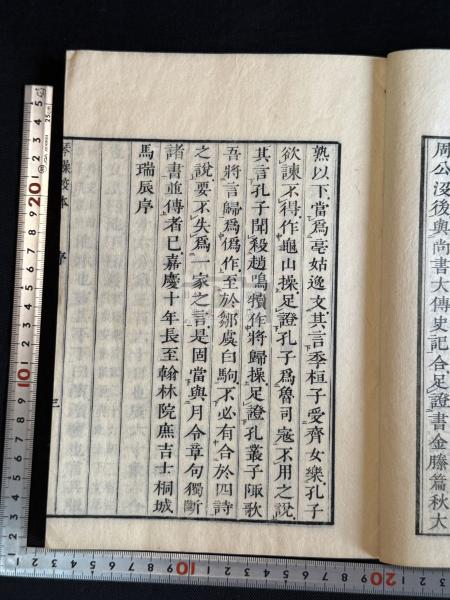 周公沒後與尚書大傳史記合足證書金縢篇秋大
熟以下當爲亳姑逸文其言季桓子受齊女樂孔子
欲諫不得作龜山操足證孔子爲魯司寇不用之說
其言孔子聞殺趙鳴犢作將歸操足證孔叢子陬歌
吾將言歸爲僞作至於鄒虞白駒不必有合於四詩
之說要不失爲一家之言是固當與月令章句獨斷
諸書並傳者巳嘉慶十年長至翰林院庶吉士桐城
馬瑞辰序
琴操校本
序
三